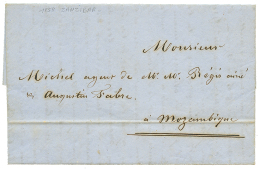 1857 ZANZIBAR
Monsieur
Michel agent de M. M. Régis ainé
Augustin Fabre.
à Mozambique